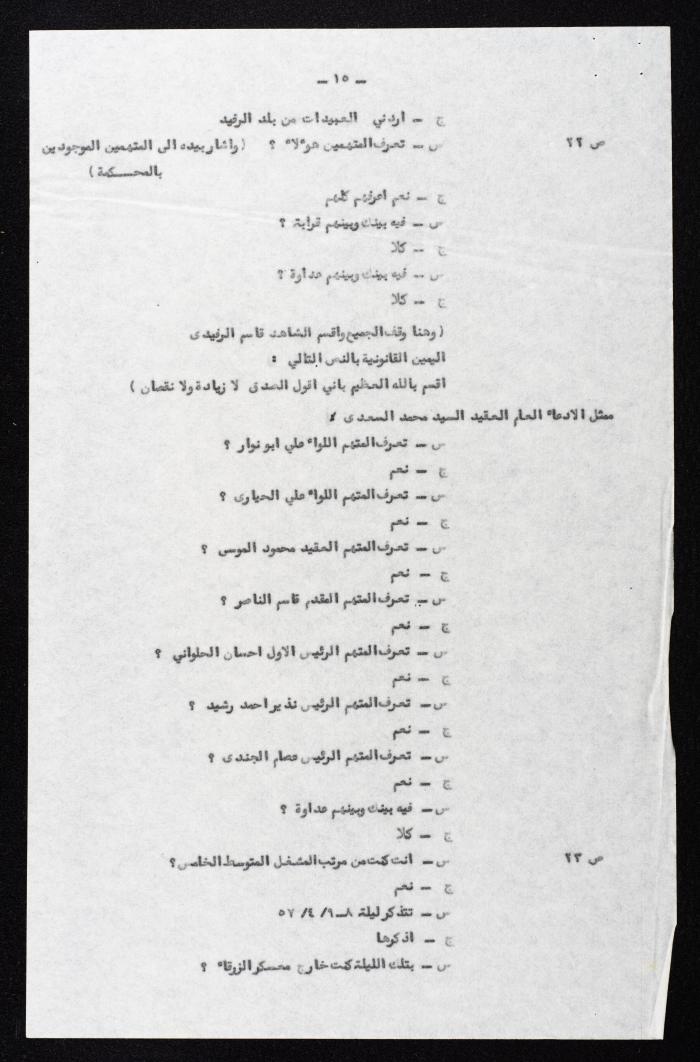 — ١٥ —
ج — اردني العبيدات من بلد الرفيد
ص ٢٢ س — تعرف المتهمين هو°لا° ؟ ( واشار بيده الى المتهمين الموجودين
بالمحـــكمة )
ج — نعم اعرفهم كلهم
س — فيه بينك وبينهم قرابة ؟
ج — كلا
س — فيه بينك وبينهم عداوة ؟
ج — كلا
( وهنا وقف الجميع واقسم الشاهد قاسم الرفيدى
اليمين القانونية بالنص التالي :
اقسم بالله العظيم باني اقول الصدق لا زيادة ولا نقصان )
ممثل الادعا° العام العقيد السيد محمد السعدى /
س — تعرف المتهم اللوا° علي ابو نوار ؟
ج — نعم
س — تعرف المتهم اللوا° علي الحيارى ؟
ج — نعم
س — تعرف المتهم العقيد محمود الموسى ؟
ج — نعم
س — تعرف المتهم المقدم قاسم الناصر ؟
ج — نعم
س — تعرف المتهم الرئيس الاول احسان الحلواني ؟
ج — نعم
س — تعرف المتهم الرئيس نذير احمد رشيد ؟
ج — نعم
س — تعرف المتهم الرئيس عصام الجندى ؟
ج — نعم
س — فيه بينك وبينهم عداوة ؟
ج — كلا
ص ٢٣ س — انت كنت من مرتب المشغل المتوسط الخامس ؟
ج — نعم
س — تتذكر ليلة ٨ــ٩/ ٤/ ٥٧
ج — اذكرها
س — بتلك الليلة كنت خارج معسكر الزرقا° ؟